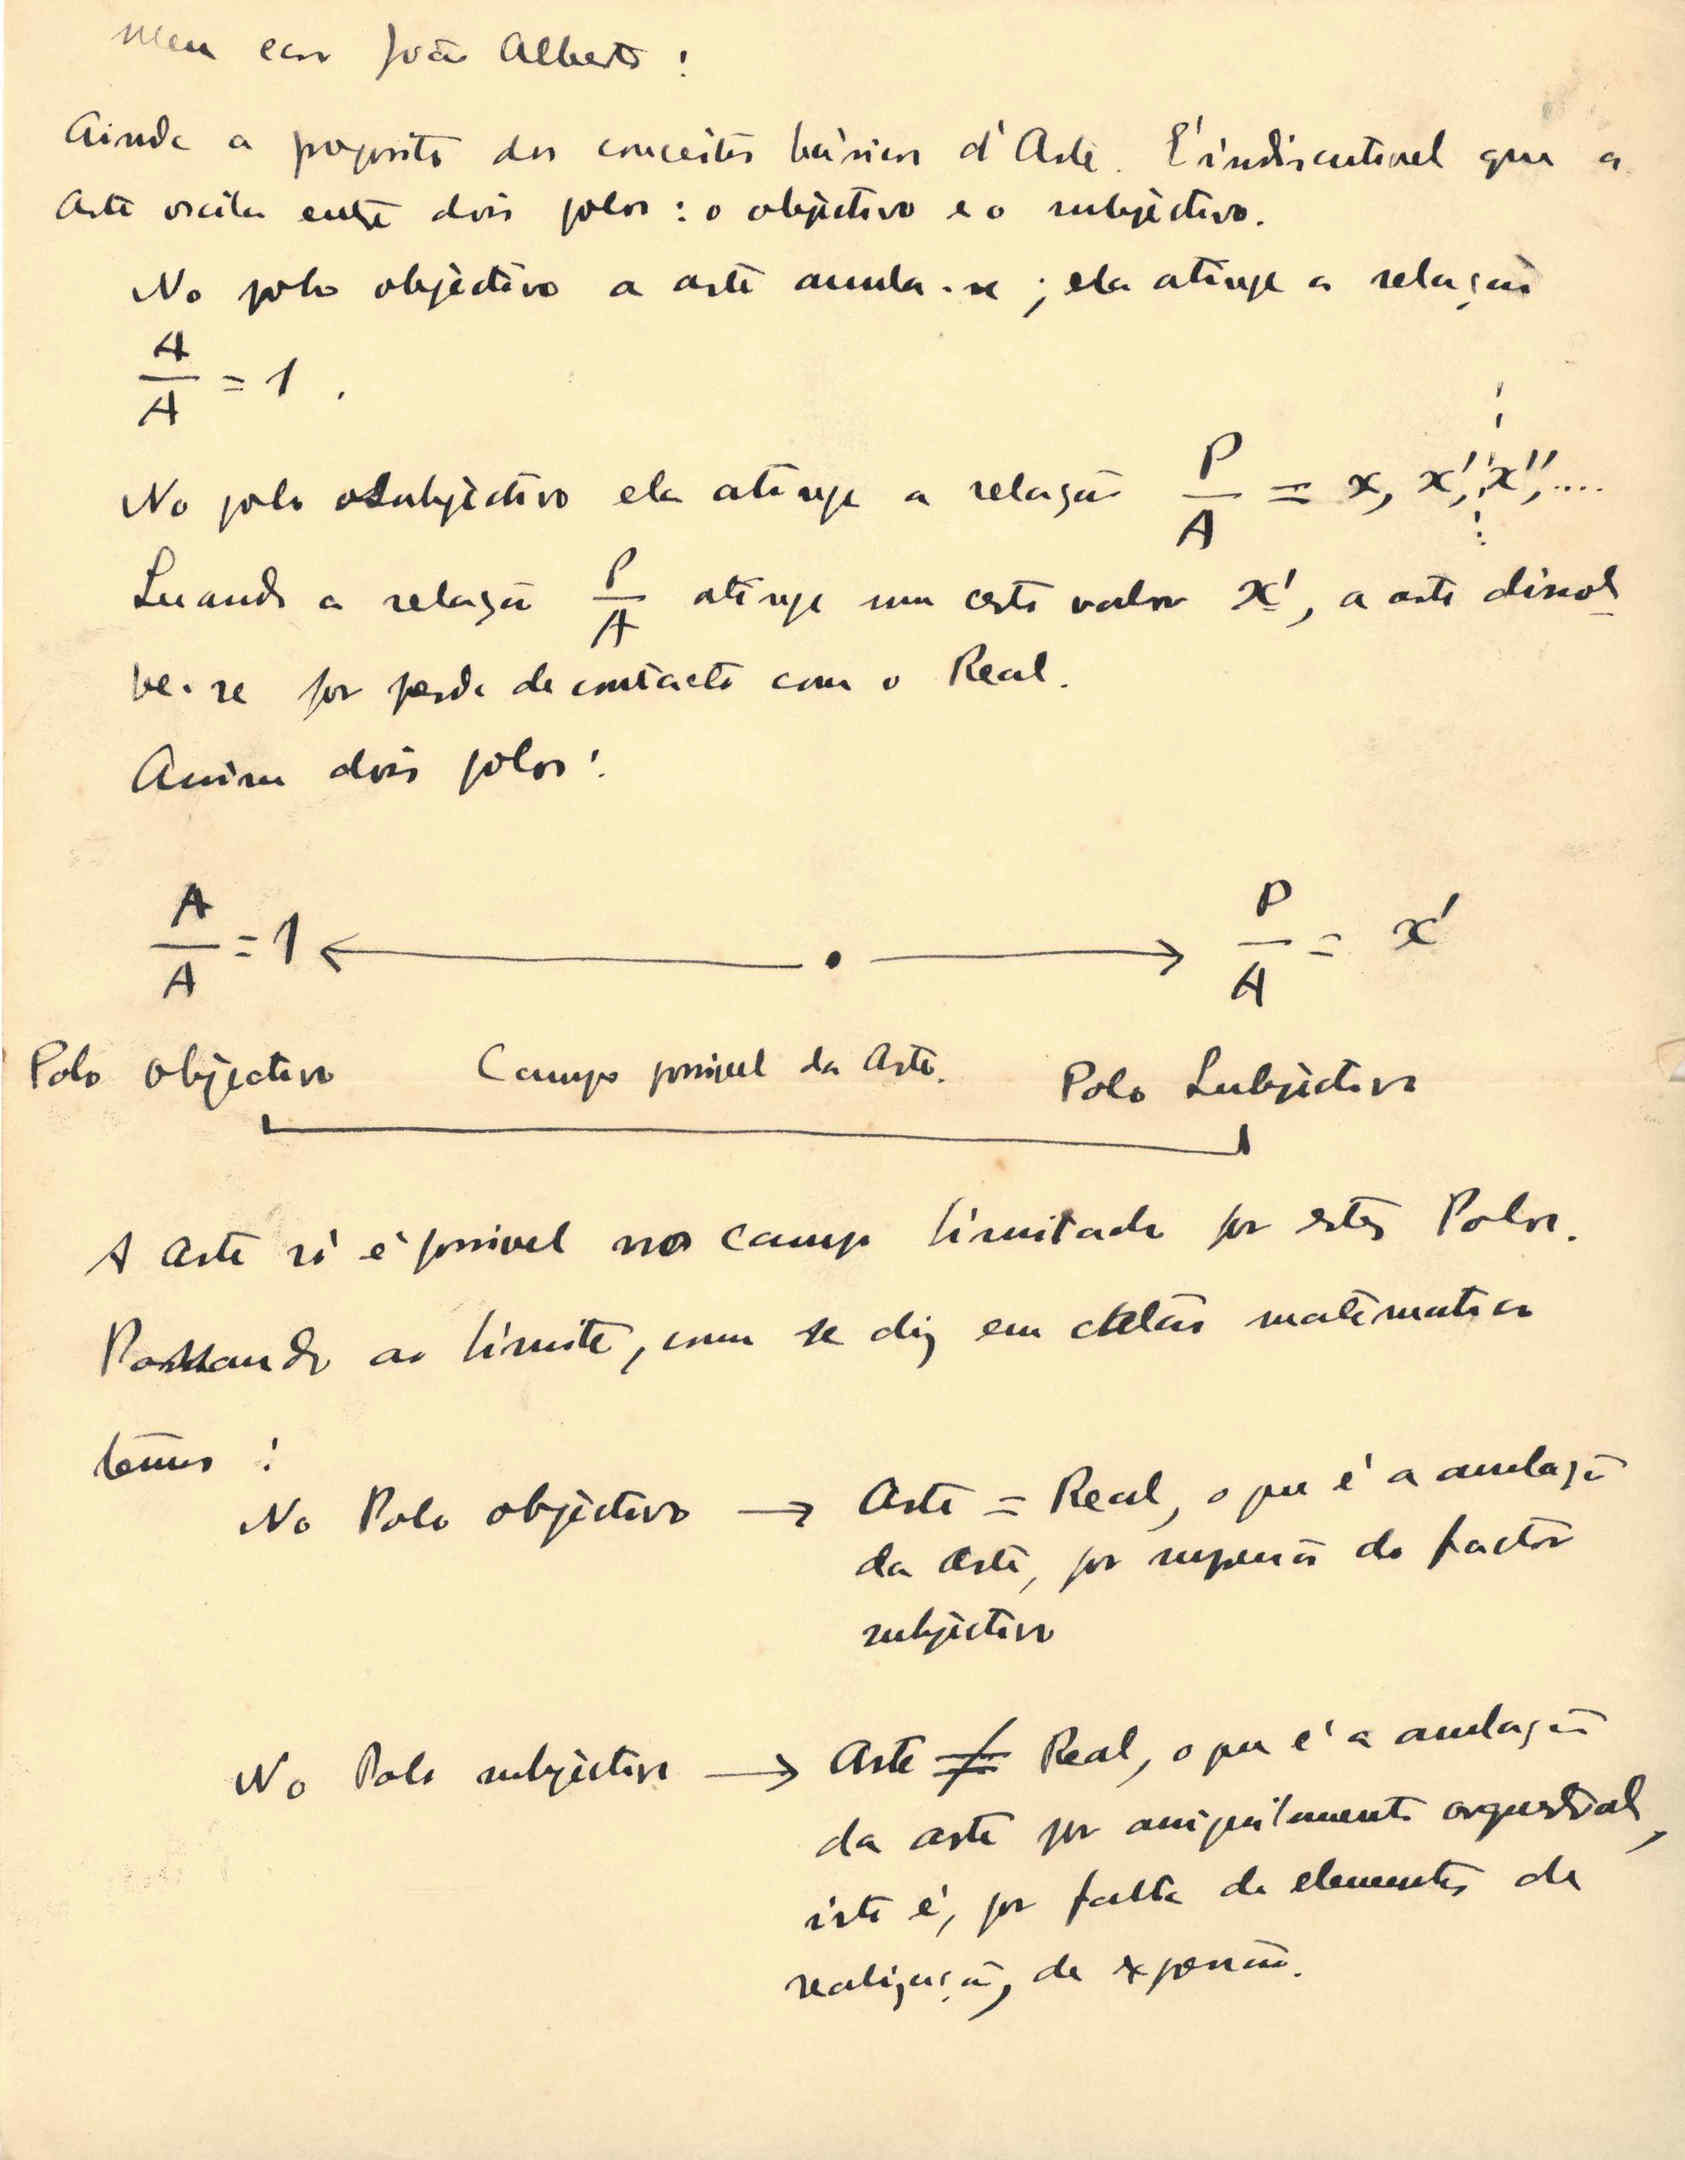 Meu caro João Alberto:
Ainda a proposito dos conceitos básicos d'Arte. É indiscutivel que a
Arte oscila entre dois polos: o objectivo e o subjectivo.
No polo objectivo a arte anula-se; ela atinge a relação
A/A = 1.
No polo subjectivo ela atinge a relação P/A = x, x', x'', ....
Quando a relação P/A atinge um certo valor x', a arte dissol
ve-se por perda de contacto com o Real.
Assim dois polos:
A/A = 1 ← • → P/A = x'
Polo objectivo Campo possivel da Arte. Polo Subjectivo
A Arte só é possivel no campo limitado por estes Polos.
Passando ao limite, como se diz em matematica
temos:
No Polo objectivo → Arte = Real, o que é a anulação
da Arte, por supressão do factor
subjectivo
No Polo subjectivo → Arte ≠ Real, o que é a anulação
da arte por
isto é, por falta de elementos de
realização, de expressão.